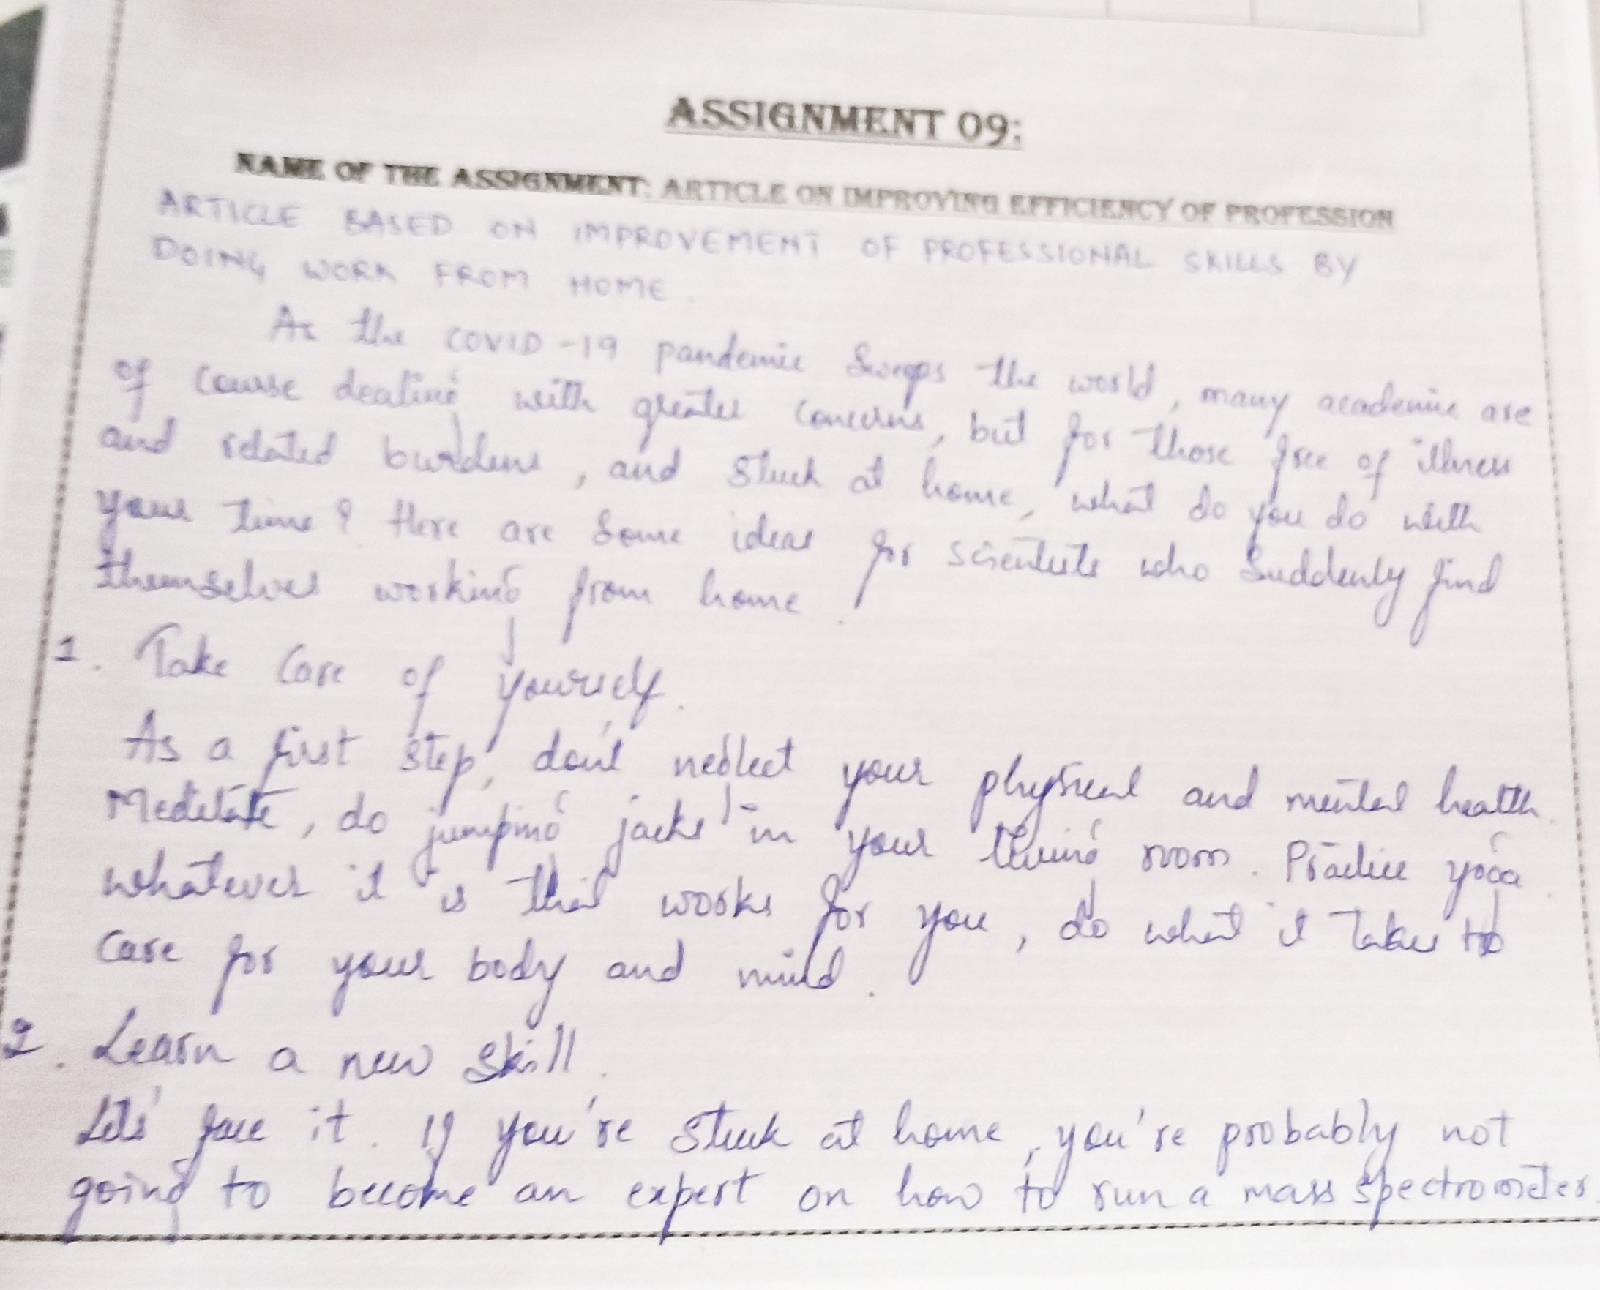 ASSIGNMENT 09:
NAME OF THE ASSIGNMENT: ARTICLE ON IMPROVING EFFICIENCY OF PROFESSION
ARTICLE BASED ON IMPROVEMENT OF PROFESSIONAL SKILLS BY
DOING WORK FROM HOME.
As the COVID-19 pandemic sweeps the world, many academic are
of course dealing with greater concerns, but for those free of illness
and related burdens, and stuck at home, what do you do with
your time? Here are some ideas for scientists who suddenly find
themselves working from home.
1. Take Care of yourself.
As a first step, don't neglect your physical and mental health.
Meditate, do jumping jacks in your living room. Practice yoga.
whatever it is that works for you, do what it takes to
care for your body and mind.
2. Learn a new skill.
Lets' face it. If you're stuck at home, you're probably not
going to become an expert on how to run a mass spectrometer.